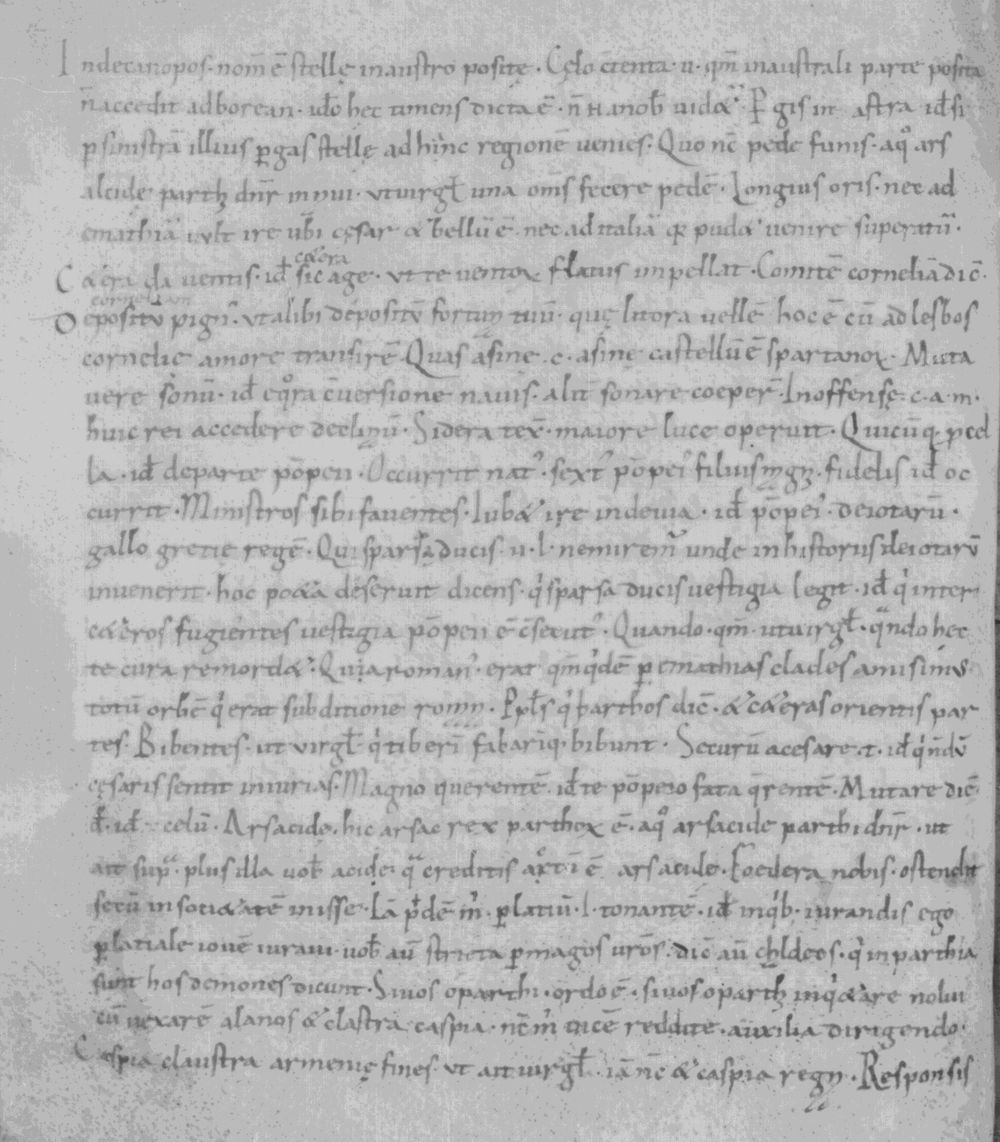 Indecanopos · nom̄ ē stellę inaustro positę · Cęlo c̄tenta · u · qm̄ inaustrali parte posita
n̄ accedit adborean · id̄o hec timens dicta ē · Pgis in astra id̄ si
p sinistrā illius pgas stellę adhinc regionē venies · Quo nc̄ pede funis · aq̊ ars
alcide parth dnr̄ innui · utvirgł una om̄s fecere pedē · Longius oris · nec ad
emathiā vult ire ub̄i cęsar & bellū ē nec ad italiā q pud& venire superatū ·
C&era da ventis · id̄ sic age · ut te ventoꝝ flatus impellat · Comitē corneliā dic̄ ·
c&era
corneliam
Depositū pign̄ · ut alibi depositū fortun tuū · quę litora vellē hoc ē cū ad lesbos
cornelie amore transirē Quas asine · c · asine castellū ē spartanoꝝ · Muta
uere sonū · id̄ c̄uersione navis · alit̄ sonare coeper̄ · Inoffense · c · a · m ·
huic rei accedere declinū · Sidera tex̄ · maiore luce operuit · Quicūq pcel
la · id̄ departe pōpeii · Occurrit nat᾽ · sext᾽ pōpei᾽ filius mgn · fidelis id̄ oc
currit · Ministros sibi faventes · Iub& ire indevia · id̄ pōpei᾽ · deiotarū ·
gallo gretie regē · Qui sparsa ducis · u · l · nemirem᾽ unde inhistoriis deiotarū
invenerit · hoc po&a deseruit dicens · q᾽ sparsa ducis vestigia legit · id̄ q᾽ inter
c&eros fugientes vestigia pōpeii ē c̄secut᾽ · Quando · qm̄ · utvirgł · qndo hec
te cura remord& · Quia roman᾽ · erat qm̄qdē p emathias clades amisimus ·
totū orbē q᾽ erat subditione romn · Ppłs q᾽ parthos dic̄ · & c&eras orientis par
tes · Bibentes · ut virgł q᾽ tiberī fabarinq bibunt · Securū acesare · t · id̄ qndū
cęsaris sentit iniurias · Magno querentē · id̄ te pōpeio fata qrentē · Mutare dic̄
d̄ · id̄ celū · Arsacide · hic arsac rex parthoꝝ ē · aq̊ arsacide parthi dnr̄ · ut
ait sup · plus illa vob̄ acide · q creditis ē arsacide · Foedera nobis · ostendit
secū insoci&atē inisse · Lā pdē m᾽ · platiū · l · tonantē · id̄ inqb · iurandis ego
platiale iove iuravi · vob̄ aū stricta pmagos vros · dic̄ aū chldeos · q᾽ in parthia
sunt hos demones dicunt · Si vos oparthi · ordo ē · si vos oparth inq&are nolui
cū vexarē alanos & clastra caspia · nc̄ m᾽ vicē reddite · auxilia dirigendo ·
Caspia claustra armenię fines · ut ait virgł · iā nc̄ & caspia regn · Responsis